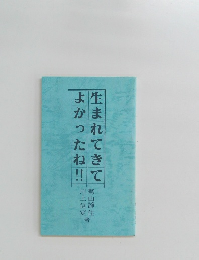 生まれてきて
よかったね!!